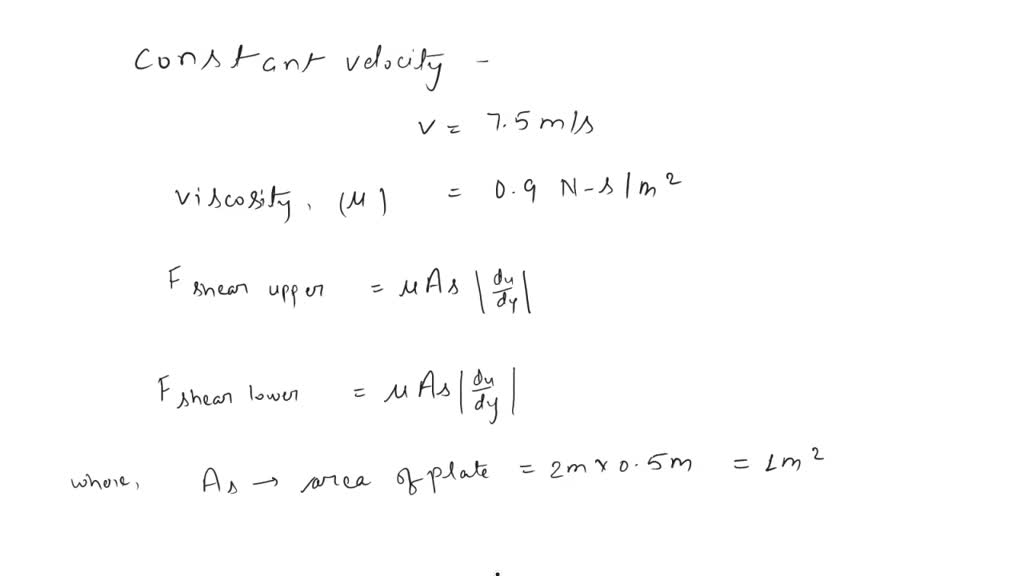 Constant velocity -
v = 7.5 m/s
Viscosity, (μ) = 0.9 N-s/m²
F shear upper = μ As |du/dy|
F shear lower = μ As |du/dy|
where, As → area of plate = 2m × 0.5m = 1m²